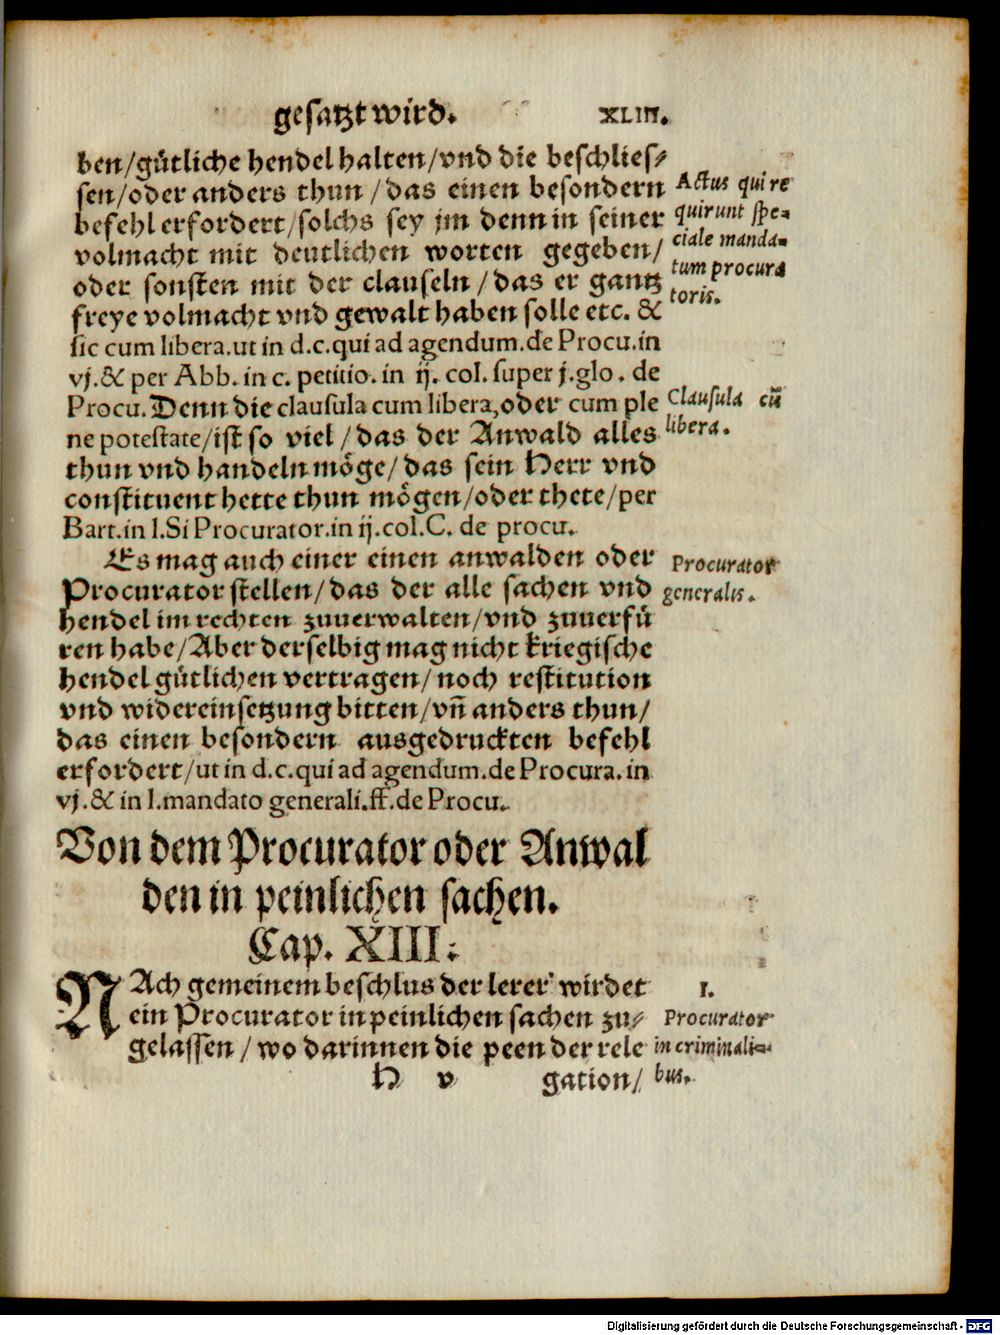 gesatzt wird. XLIII.
ben/gütliche hendel halten/vnd die beschlies⸗
sen/oder anders thun/das einen besondern
befehl erfordert/solchs sey jm denn in seiner
volmacht mit deutlichen worten gegeben/
oder sonsten mit der clauseln/das er gantz
freye volmacht vnd gewalt haben solle etc. &
sic cum libera.ut in d.c.qui ad agendum.de Procu.in
vj.& per Abb. in c. petitio. in ij. col. super j.glo. de
Procu. Denn die clausula cum libera, oder cum ple
ne potestate/ist so viel/das der Anwald alles
thun vnd handeln möge/das sein Herr vnd
constituent hette thun mögen/oder thete/per
Bart.in l.Si Procurator.in ij.col.C. de procu.
Actus qui re
quirunt spe⸗
ciale manda⸗
tum procura
toris.
Clausula cū
libera.
Es mag auch einer einen anwalden oder
Procurator stellen/das der alle sachen vnd
hendel im rechten zuuerwalten/vnd zuuerfü
ren habe/Aber derselbig mag nicht kriegische
hendel gütlichen vertragen/noch restitution
vnd widereinsetzung bitten/vñ anders thun/
das einen besondern ausgedruckten befehl
erfordert/ut in d.c.qui ad agendum.de Procura. in
vj.& in l.mandato generali.ff.de Procu.
Procurator
generalis.
Von dem Procurator oder Anwal
den in peinlichen sachen.
Cap. XIII.
NAch gemeinem beschlus der lerer wirdet
ein Procurator in peinlichen sachen zu⸗
gelassen/wo darinnen die peen der rele
1.
Procurator
in criminali⸗
bus.
H v gation/
Digitalisierung gefördert durch die Deutsche Forschungsgemeinschaft - DFG